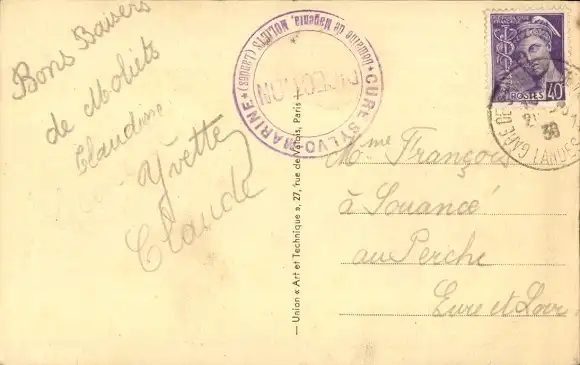 Bons Baisers
de Moliets
Claudine
Yvette
Claude
CURE SYLVO MARINE
Domaine de Magenta, MOLIETS (Landes)
DIRECTION
— Union « Art et Technique », 27, rue de Valois, Paris —
POSTES 40
GARE DE
LANDES
38
Mme François
à Souancé
au Perche
Eure et Loir